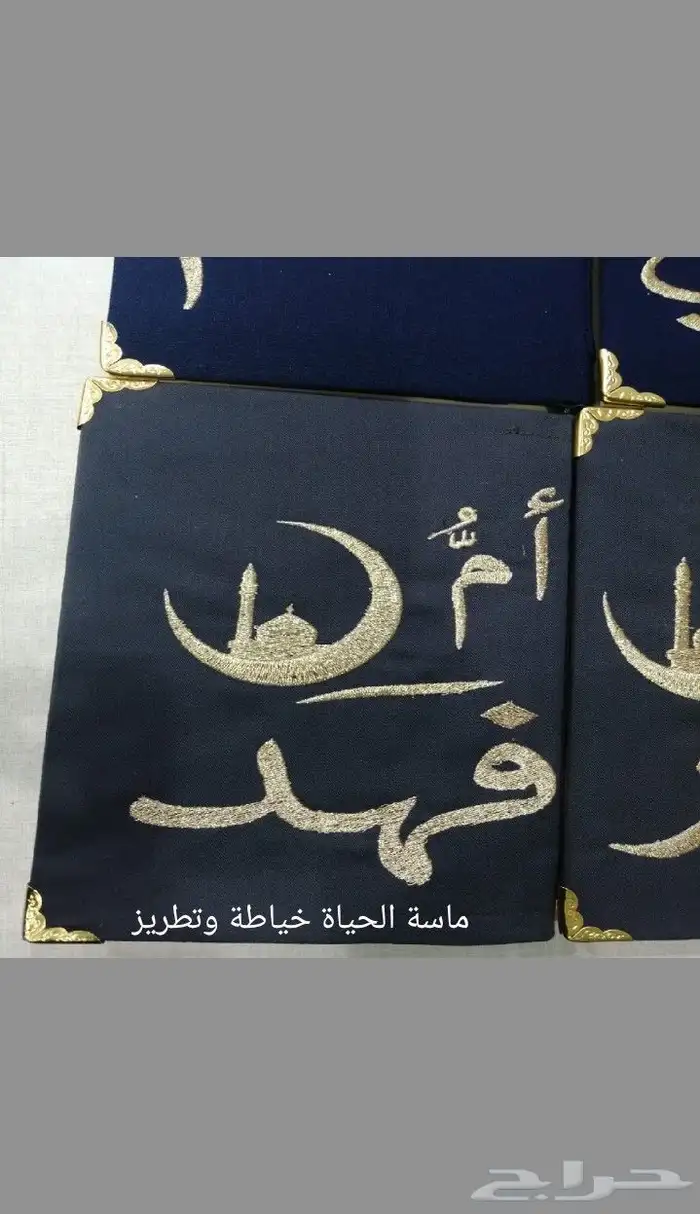 أمُّ
فهد
ماسة الحياة خياطة وتطريز
حراج